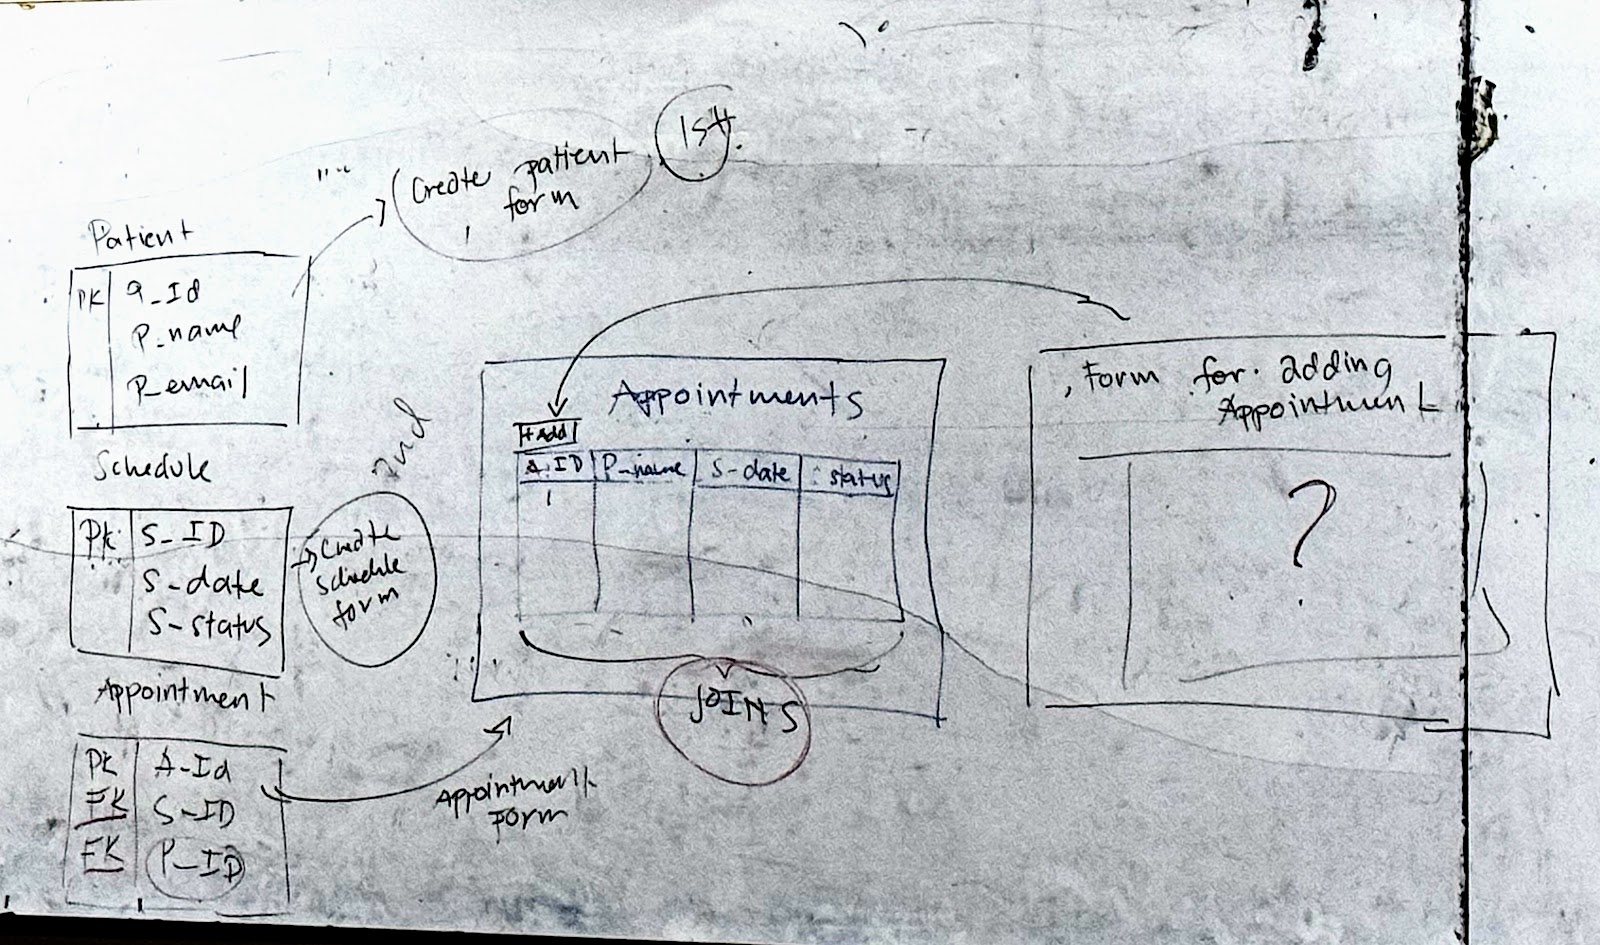 1st.
Create patient
form
Patient
PK
P_Id
P_name
P_email
2nd
Schedule
Pk
S_ID
S-date
S-status
Create
Schedule
form
Appointment
Pk A-Id
FK S-ID
FK P-ID
Appointment
Form
Appointments
+Add
A.ID P_name S-date status
1
JOINS
Form for adding
Appointment
?